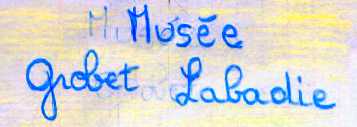 Musée
Grobet Labadie